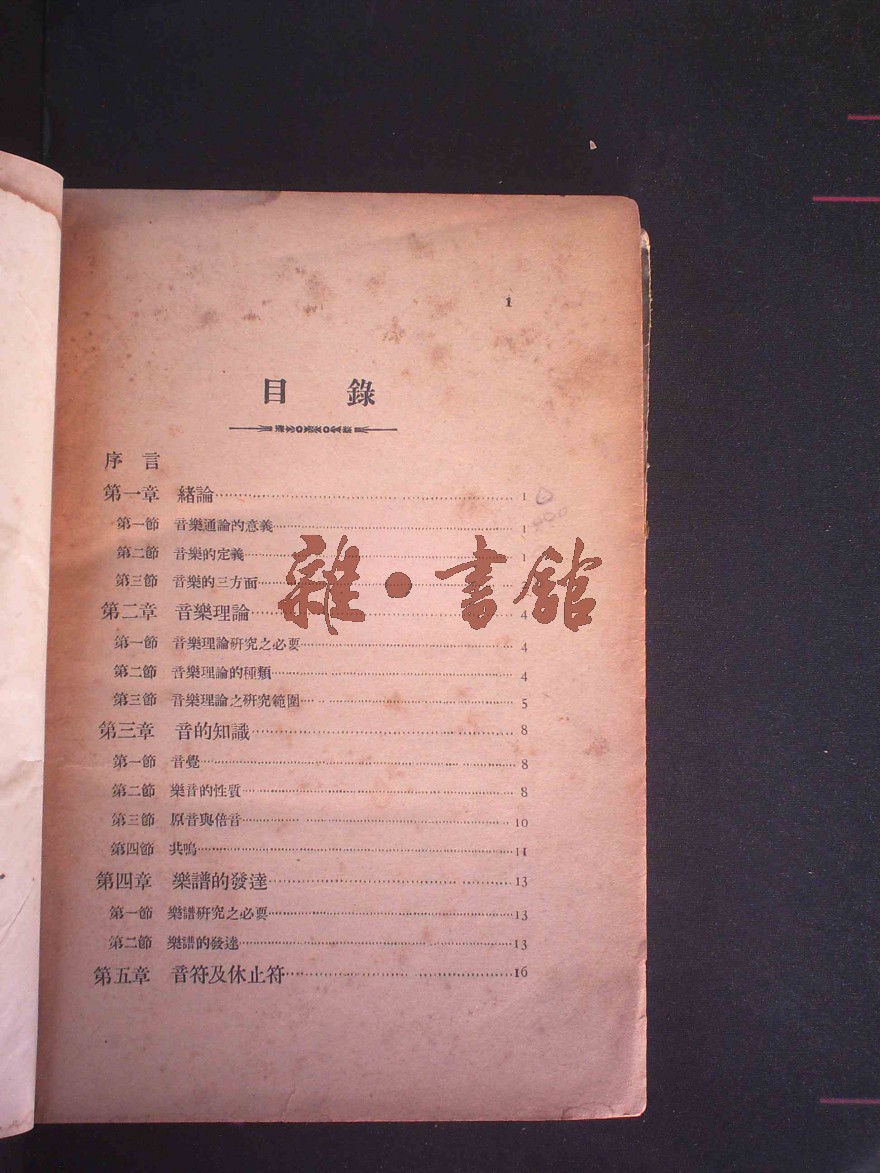 1
目 錄
序 言
第一章 緒論 1
第一節 音樂通論的意義 1
第二節 音樂的定義 1
第三節 音樂的三方面
第二章 音樂理論 4
第一節 音樂理論研究之必要 4
第二節 音樂理論的種類 4
第三節 音樂理論之研究範圍 5
第三章 音的知識 8
第一節 音覺 8
第二節 樂音的性質 8
第三節 原音與倍音 10
第四節 共鳴 11
第四章 樂譜的發達 13
第一節 樂譜研究之必要 13
第二節 樂譜的發達 13
第五章 音符及休止符 16
雜·書館